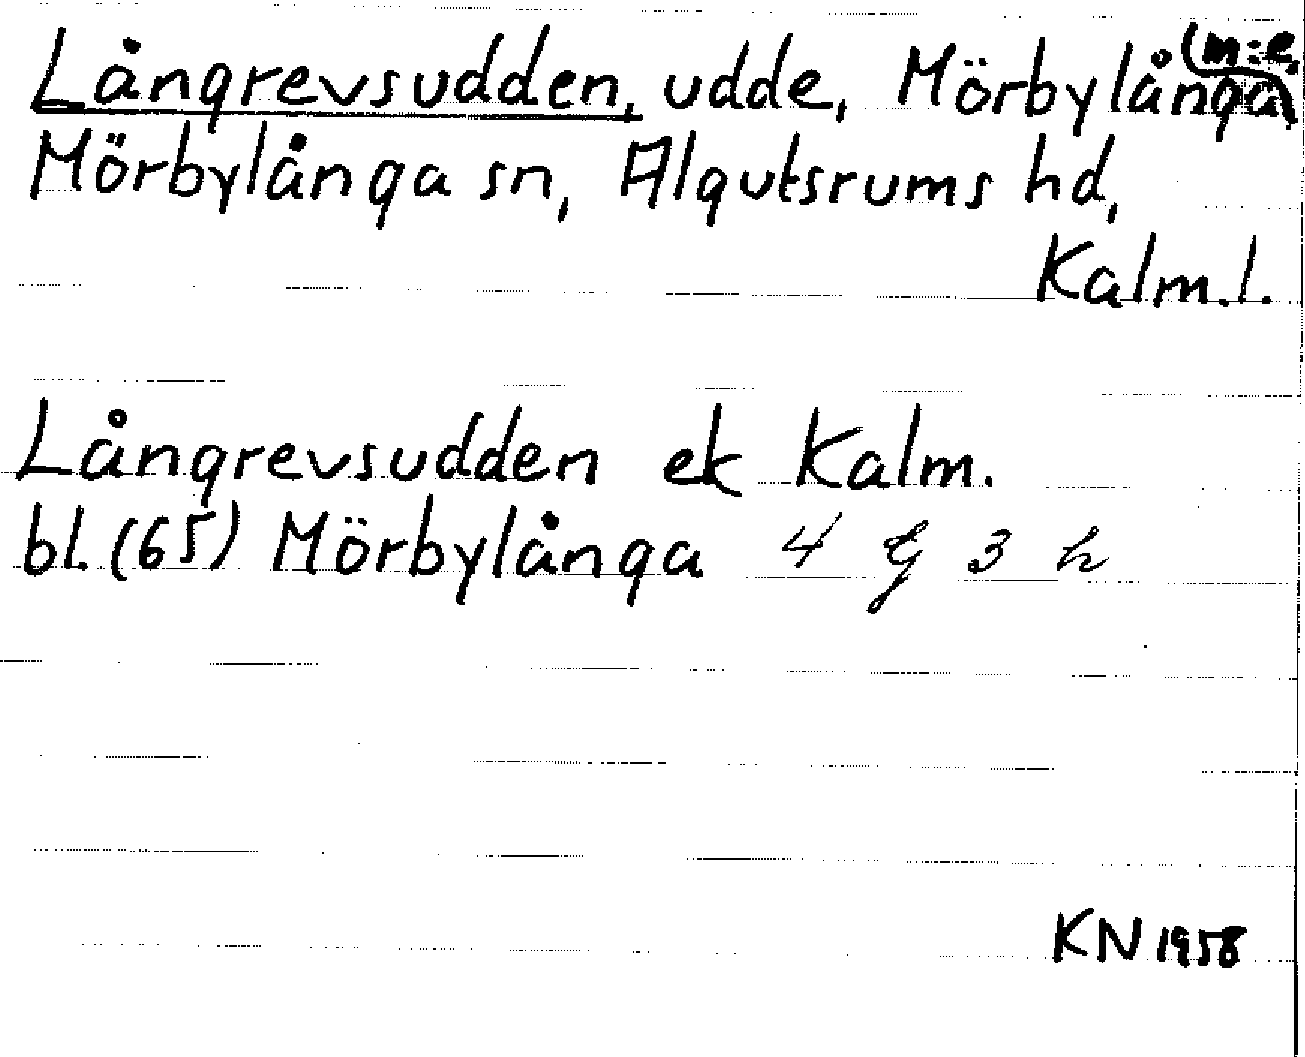 Långrevsudden, udde, Mörbylånga (m:e,
Mörbylånga sn, Algutsrums hd,
Kalm.l.
Långrevsudden ek Kalm.
bl.(65) Mörbylånga 4 G 3 h
KN 1958